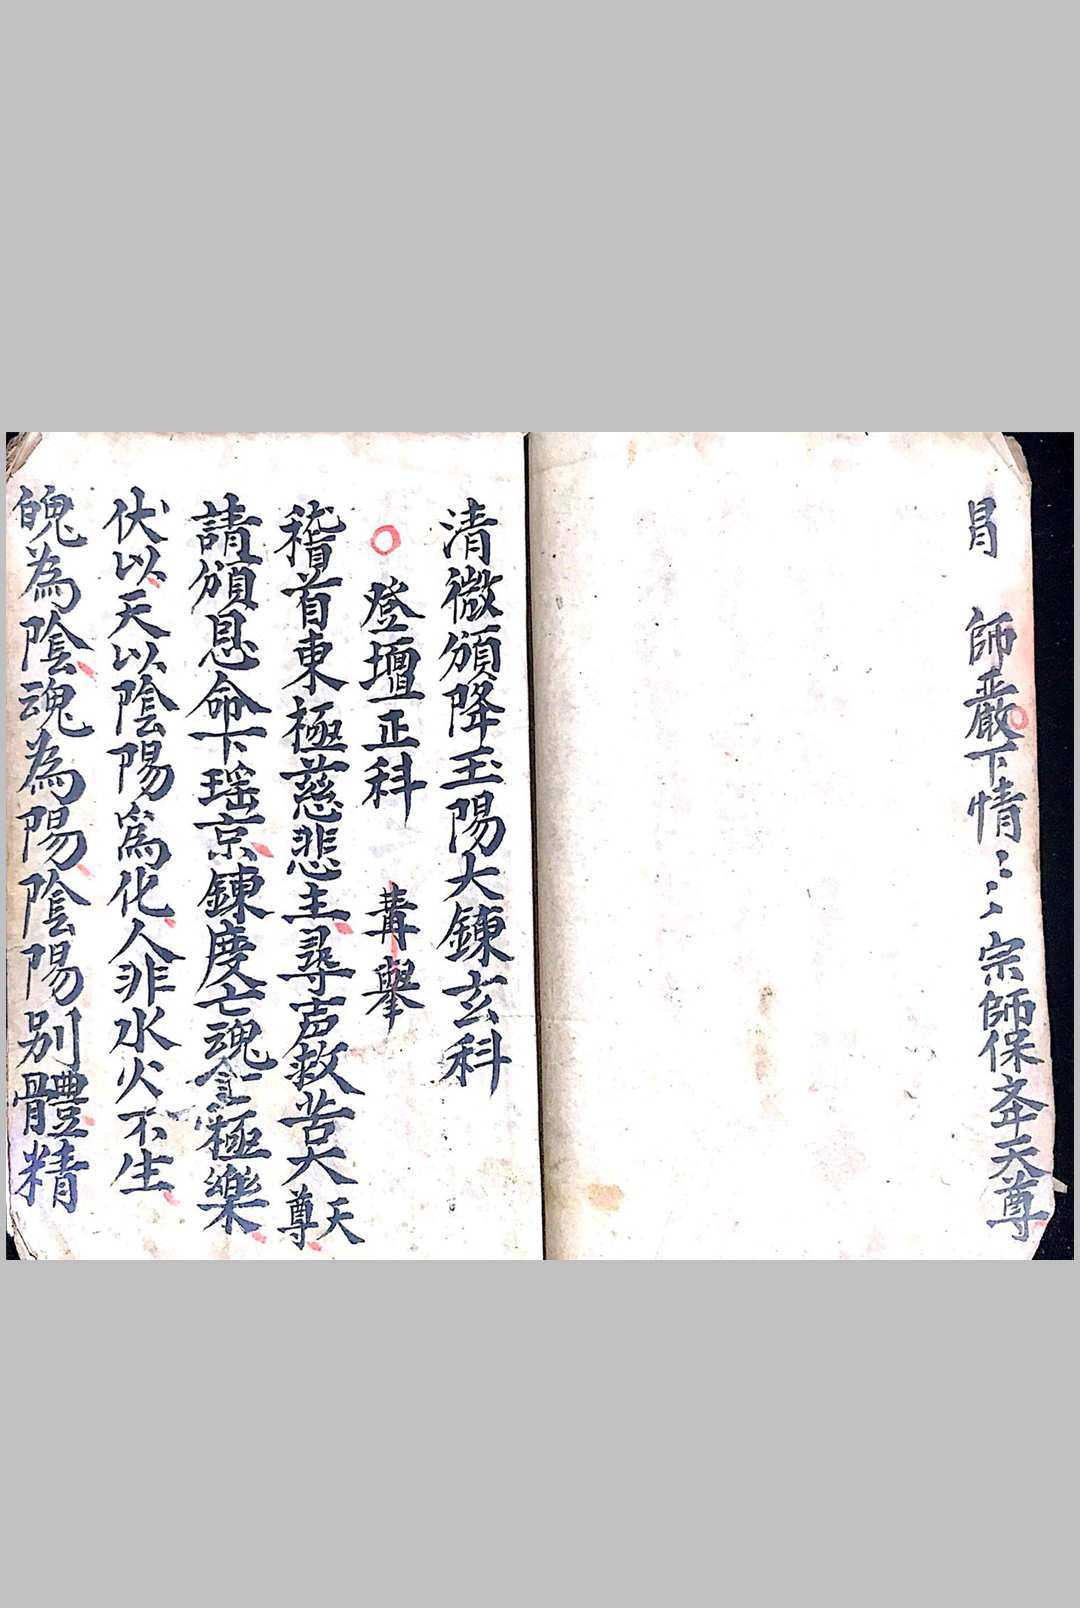 冒　師嚴下情⺀⺀宗師保夲天尊
清微頒降玉陽大鍊玄科
登壇正科　冓舉
稽首東極慈悲主尋声救苦大天尊
請頒恩命下瑶京鍊度亡魂登極樂
伏以天以陰陽爲化人非水火不生
魄為陰魂為陽陰陽别體精